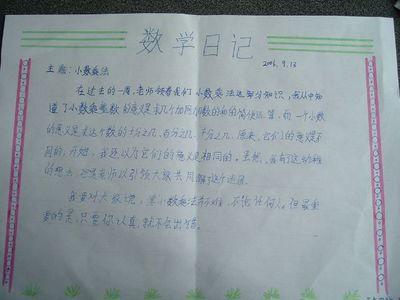 数学日记
2006.9.13
主题:小数乘法
在过去的一周,老师领着我们小数乘法这部分知识,我从中知
道了小数乘整数的意义是求几个加数的和的简便运算,而一个小数
的意义是求这个数的十分之几,百分之几,千分之几,原来,它们的意义是不
同的,开始,我还以为它们的意义是相同的。虽然,我有这幼稚
的想法,还是老师以引领大家共同解了这个迷团。
我要对大家说,学小数乘法不难,不管任何人,但最重
要的是,只要你认真,就不会出错。